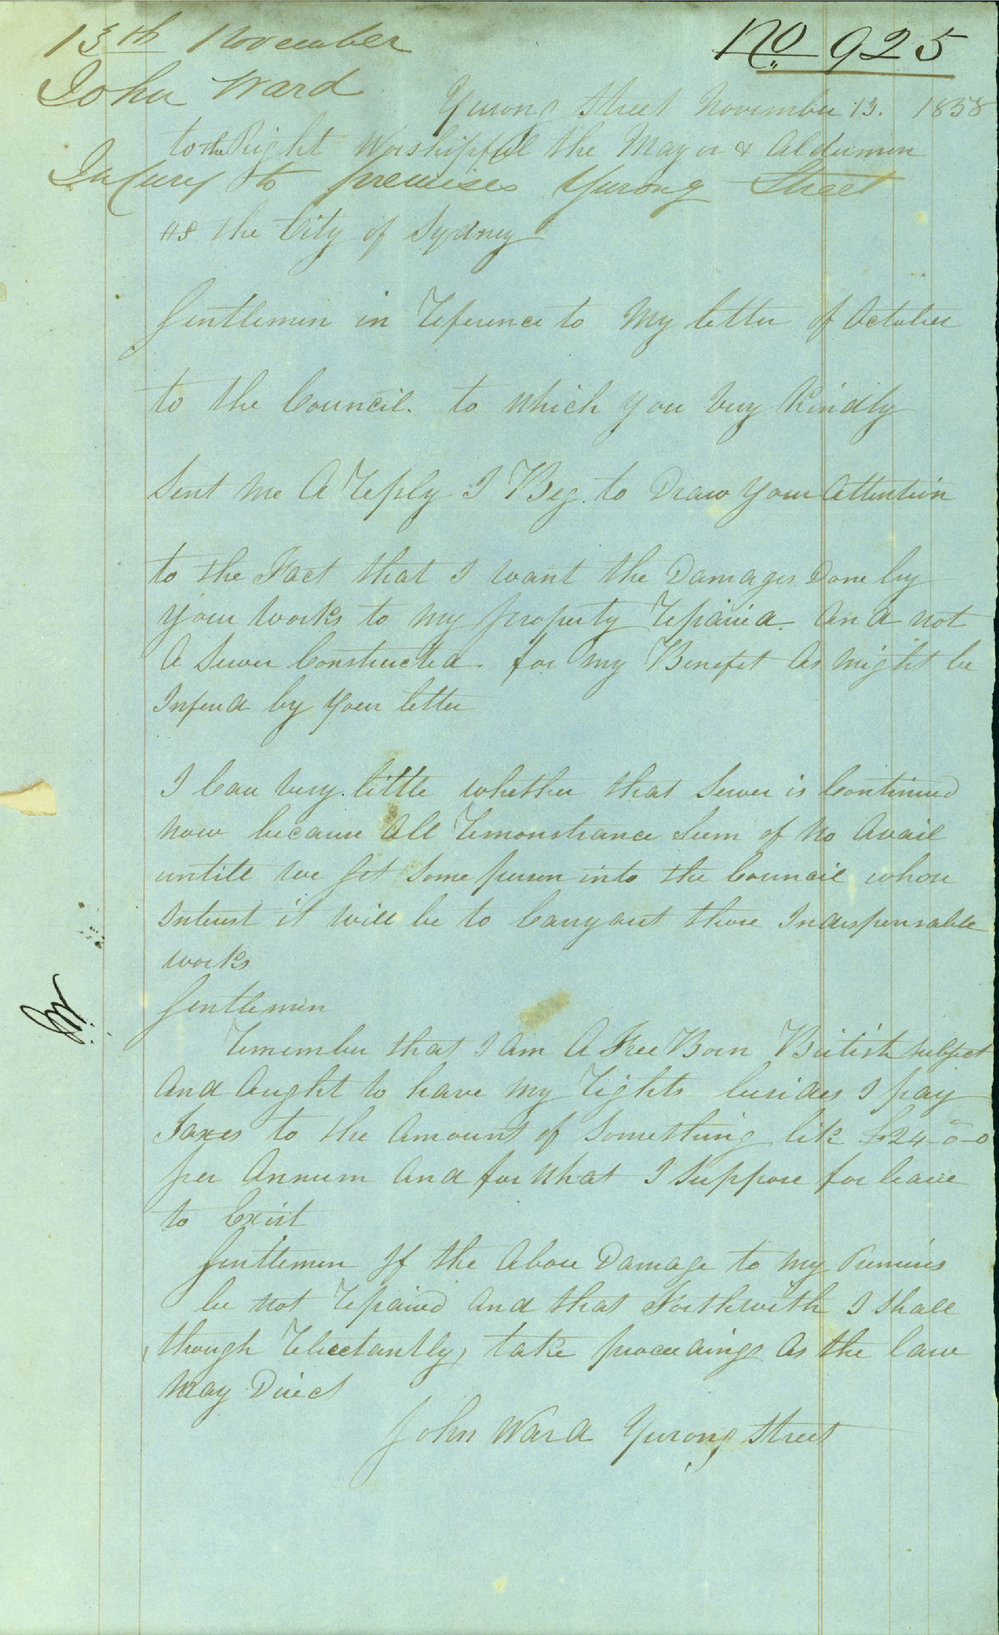 13th November
No 925
John Ward
Yurong Street November 13. 1858
to the Right Worshipful the Mayor & Aldermen
Injury to premises Yurong Street
of the City of Sydney
Gentlemen in Reference to My letter of October
to the Council. to which you Very Kindly
Sent Me A Reply I Beg. to Draw Your Attention
to the Fact that I want the Damages Done by
your works to My property Repaired. And not
A Sewer Constructed. for My Benefit As Might be
Infered by your letter
I Care Very little whether that Sewer is Continued
Now because All Remonstrance Seem of No Avail
untill we Get Some person into the Council whose
Interest it will be to Carry out those Indispensable
works
Gentlemen
Remember that I Am A Free Born British Subject
And Aught to have My Rights. besides I pay
Taxes to the Amount of Something like £24-0-0
per Annum And for What I Suppose for leave
to Exist
Gentlemen If the Above Damage to My Premises
be Not Repaired And that Forthwith I Shall
though Reluctantly, take proceedings As the law
May Direct
John Ward Yurong Street